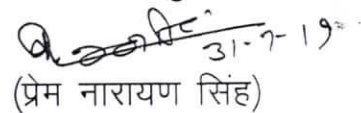 31-7-19
(प्रेम नारायण सिंह)